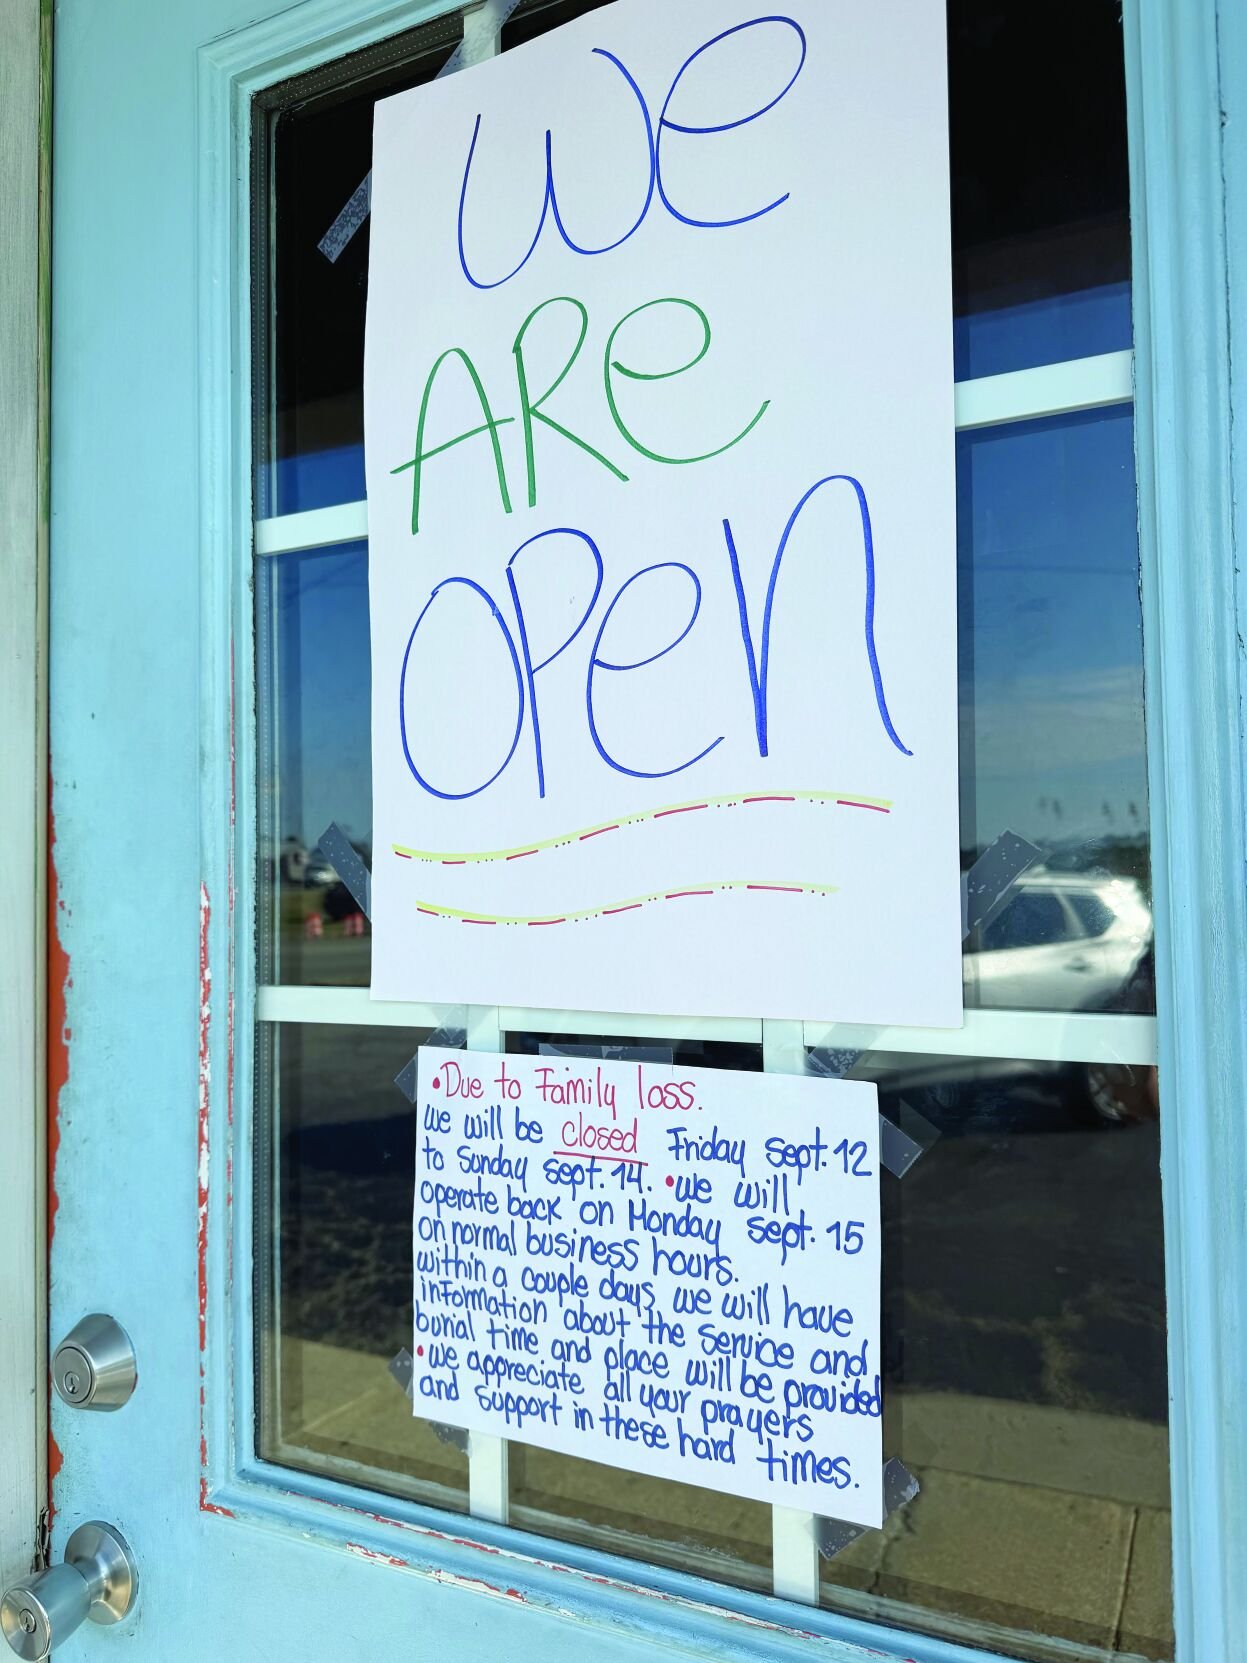 We
ARe
OPen
•Due to Family loss.
we will be closed Friday Sept. 12
to Sunday Sept. 14. •we will
operate back on Monday Sept. 15
on normal business hours.
within a couple days we will have
information about the service and
burial time and place will be provided
•we appreciate all your prayers
and support in these hard times.